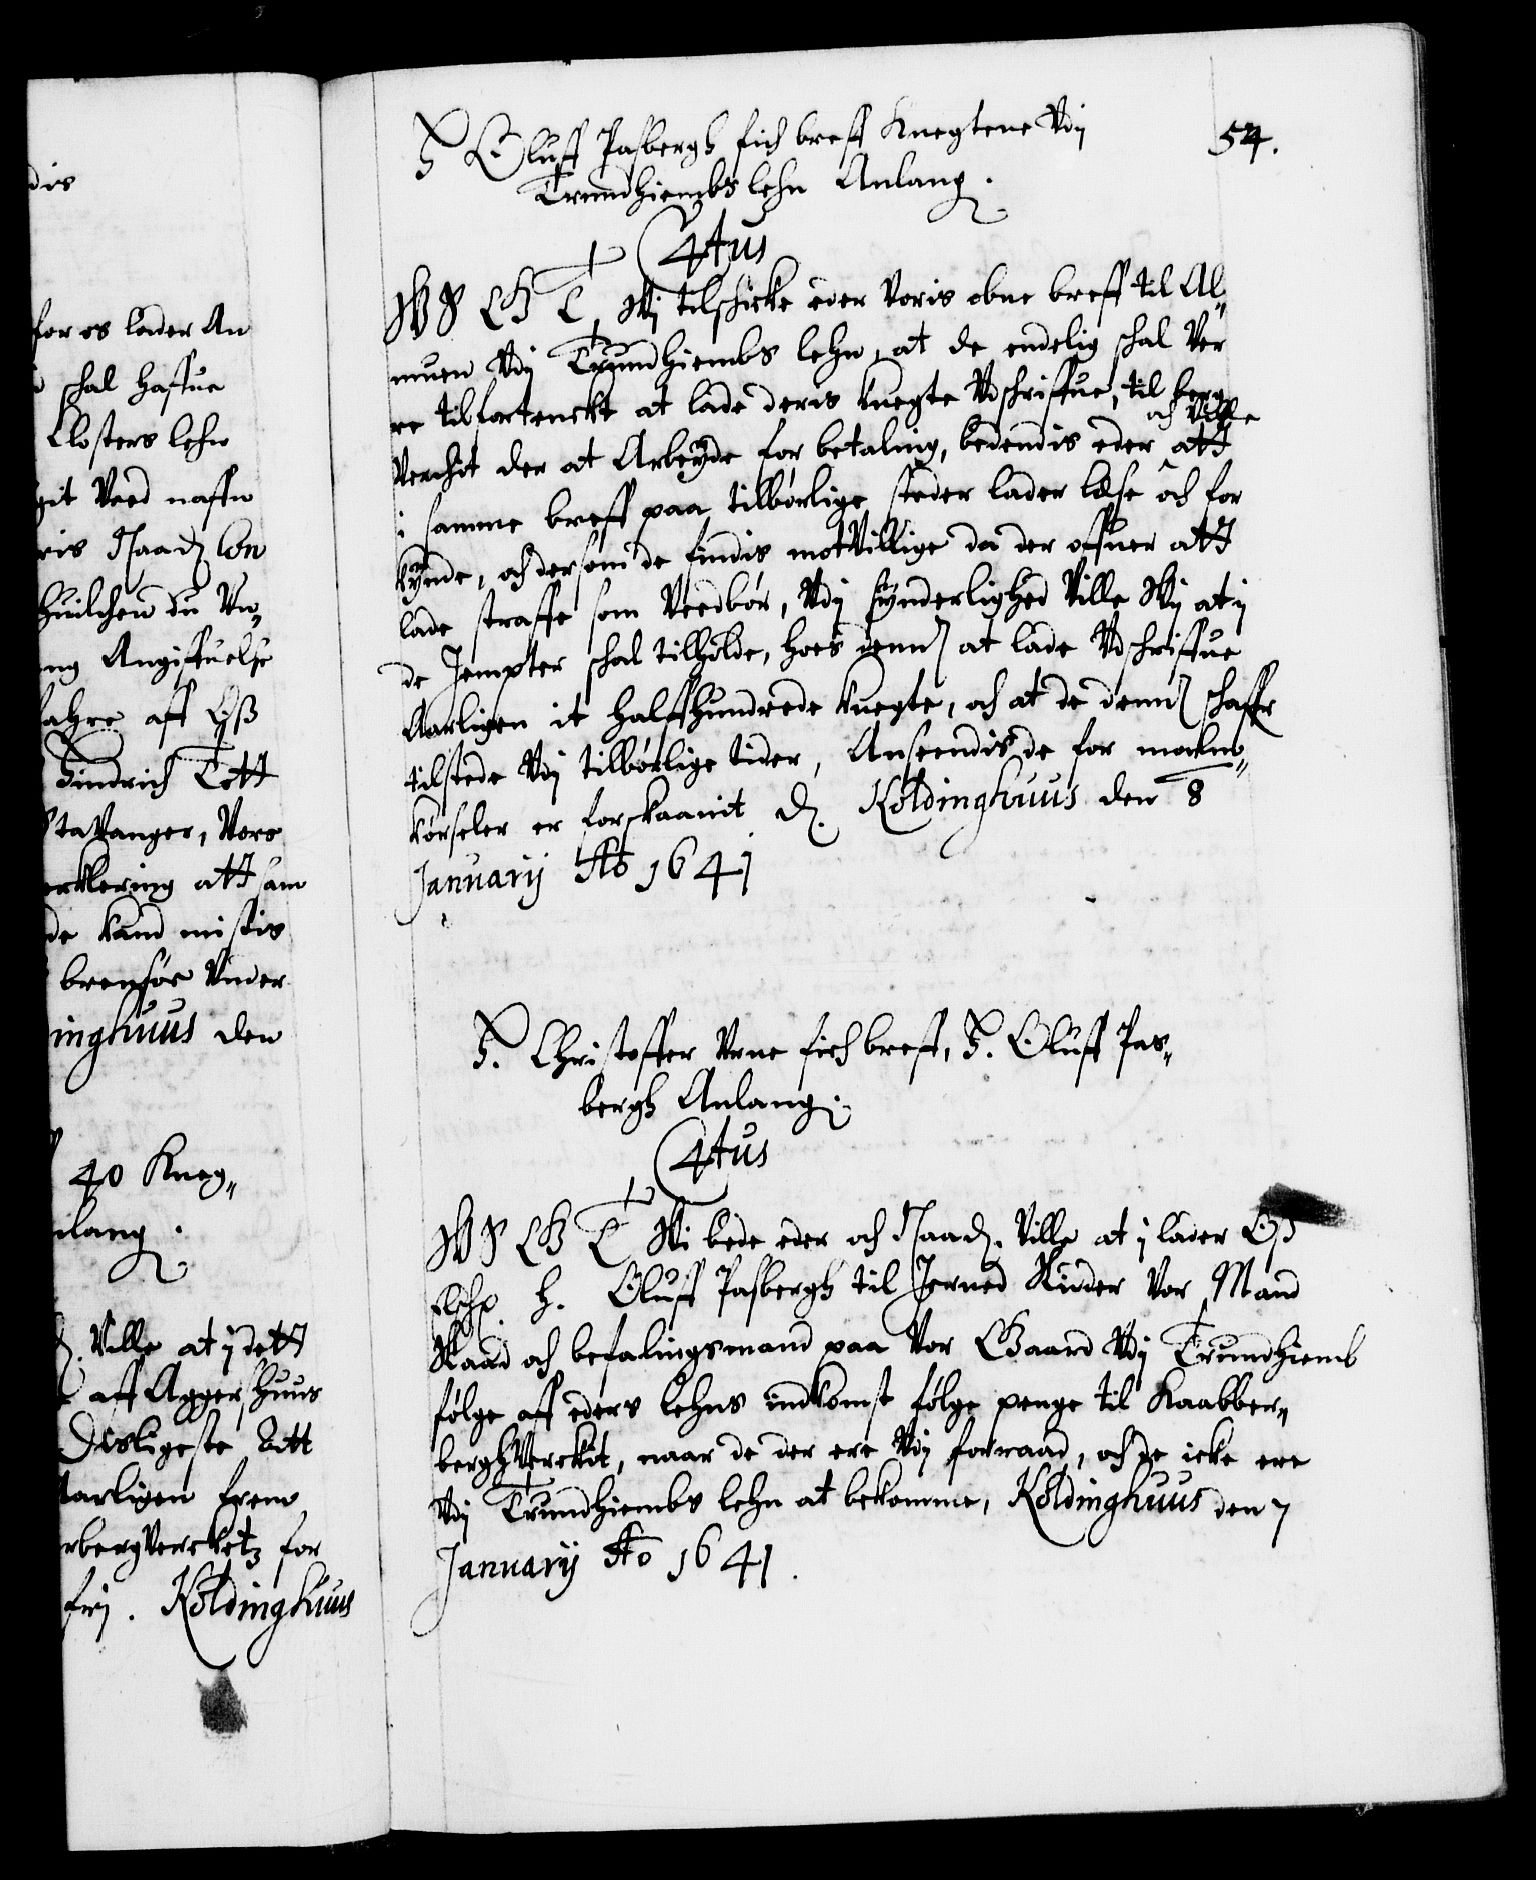 dis
for os lader An
schal haffue
Closters lehn
git Veed naffn
ris Naad Con
huilchen du Vn„
ng Angiffuelse
fahre aff Oss
Hindrich Tott
Stavanger, Vors
erklering att sam
de kand mistis
brenfør Vnder
inghuus den
40 Kneg„
nlang.
Ville at i dett
aff Aggershuus
Disligeste Litt
aarligen frem
rbergVercketz for
frij. Koldinghuus
54.
H Oluff Pasbergh fich breff Knegtene Vdj
Trundhiembs lehn Anlang.
C4tus
W S G T, Wj tilschicke eder Voris obne breff til Al„
muen Vdj Trundhiembs lehn, at de endelig schal Ver
re tilfortenckt at lade deris knegte Vdschriffue, til berg
Verchit der at Arbeyde for betaling, bedendis eder och Ville att
i samme breff paa tilbørlige steder lader læse och for
kynde, och dersom de findis motVillige da der offuer att
lade straffe som Veedbør, Vdj synderlighed Ville Wj at j
de Jempter schal tilholde, hoes denn at lade Vdschriffue
Aarligen it halffhundrede knegte, och at de denn schaffe
tilstede Vdj tilbørlige tider, Anseendis de for malm„
kørseler er forskaanit d. Koldinghuus den 8
Januarij Ao 1641
H. Christoffer Vrne fich breff, H. Oluff Pas„
bergh Anlang.
C4tus
W S G T Wi bede eder och Naad. Ville at j lader Oss
Elsch. H. Oluff Pasbergh til Jerned Ridder Vor Mand
Raad och befalingsmand paa Vor Gaard Vdj Trundhiemb
følge aff eders lehns indkomst følge penge til Kaabber„
berghVerckit, naar de der ere Vdj forraad, och de icke ere
Vdj Trundhiembs lehn at bekomme, Koldinghuus den 7
Januarij Ao 1641.